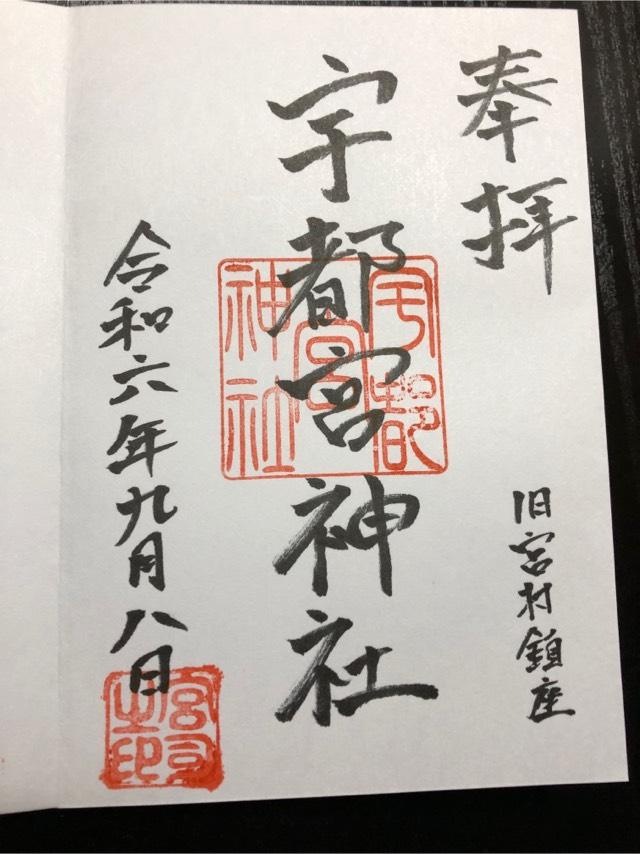 奉拝
旧宮村鎮座
宇都宮神社
宇都宮神社
令和六年九月八日
宮司之印